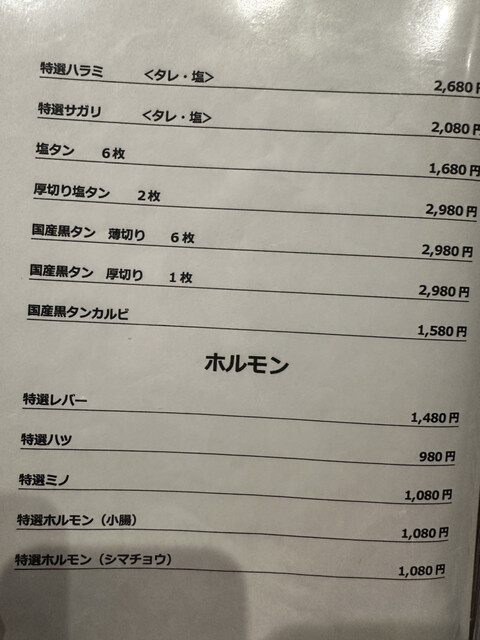 特選ハラミ <タレ・塩> 2,680円
特選サガリ <タレ・塩> 2,080円
塩タン 6枚 1,680円
厚切り塩タン 2枚 2,980円
国産黒タン 薄切り 6枚 2,980円
国産黒タン 厚切り 1枚 2,980円
国産黒タンカルビ 1,580円
ホルモン
特選レバー 1,480円
特選ハツ 980円
特選ミノ 1,080円
特選ホルモン（小腸） 1,080円
特選ホルモン（シマチョウ） 1,080円